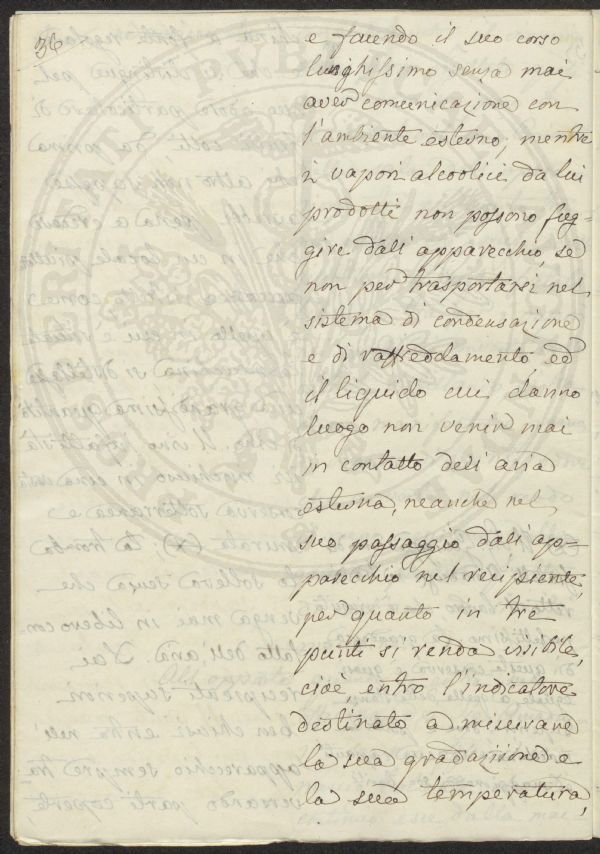 36
e facendo il suo corso
lunghissimo senza mai
aver comunicazione con
l'ambiente esterno, mentre
i vapori alcoolici da lui
prodotti non possono fug-
gire dall'apparecchio, se
non per trasportarsi nel
sistema di condensazione
e di raffreddamento ed
il liquido cui danno
luogo non venir mai
in contatto dell'aria
esterna, neanche nel
suo passaggio dall'ap-
parecchio nel recipiente,
per quanto in tre
punti si renda visibile,
cioè, entro l'indicatore
destinato a misurare
la sua gradazione e
la sua temperatura,